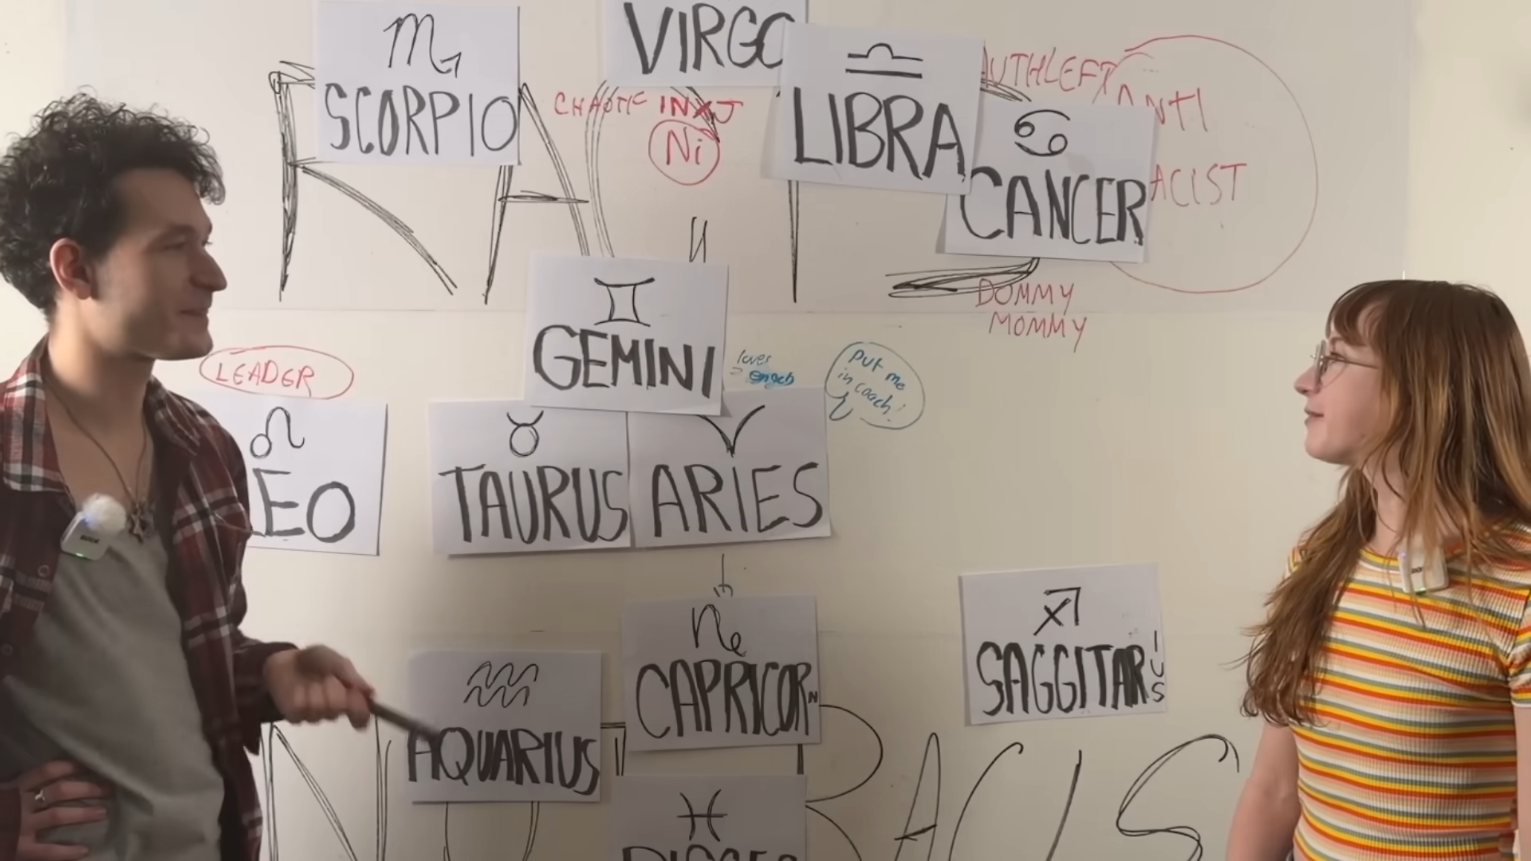 ♏
SCORPIO
VIRGO
♎
LIBRA
AUTHLEFT
ANTI
RACIST
CHAOTIC INXJ
Ni
♋
CANCER
RACIST
DOMMY
MOMMY
♊
GEMINI
loves
put me
in coach!
LEADER
♌
LEO
♉
TAURUS
♈
ARIES
♑
CAPRICORN
♐
SAGGITARIUS
♒
AQUARIUS
♓
PISCES
NOT RACIS